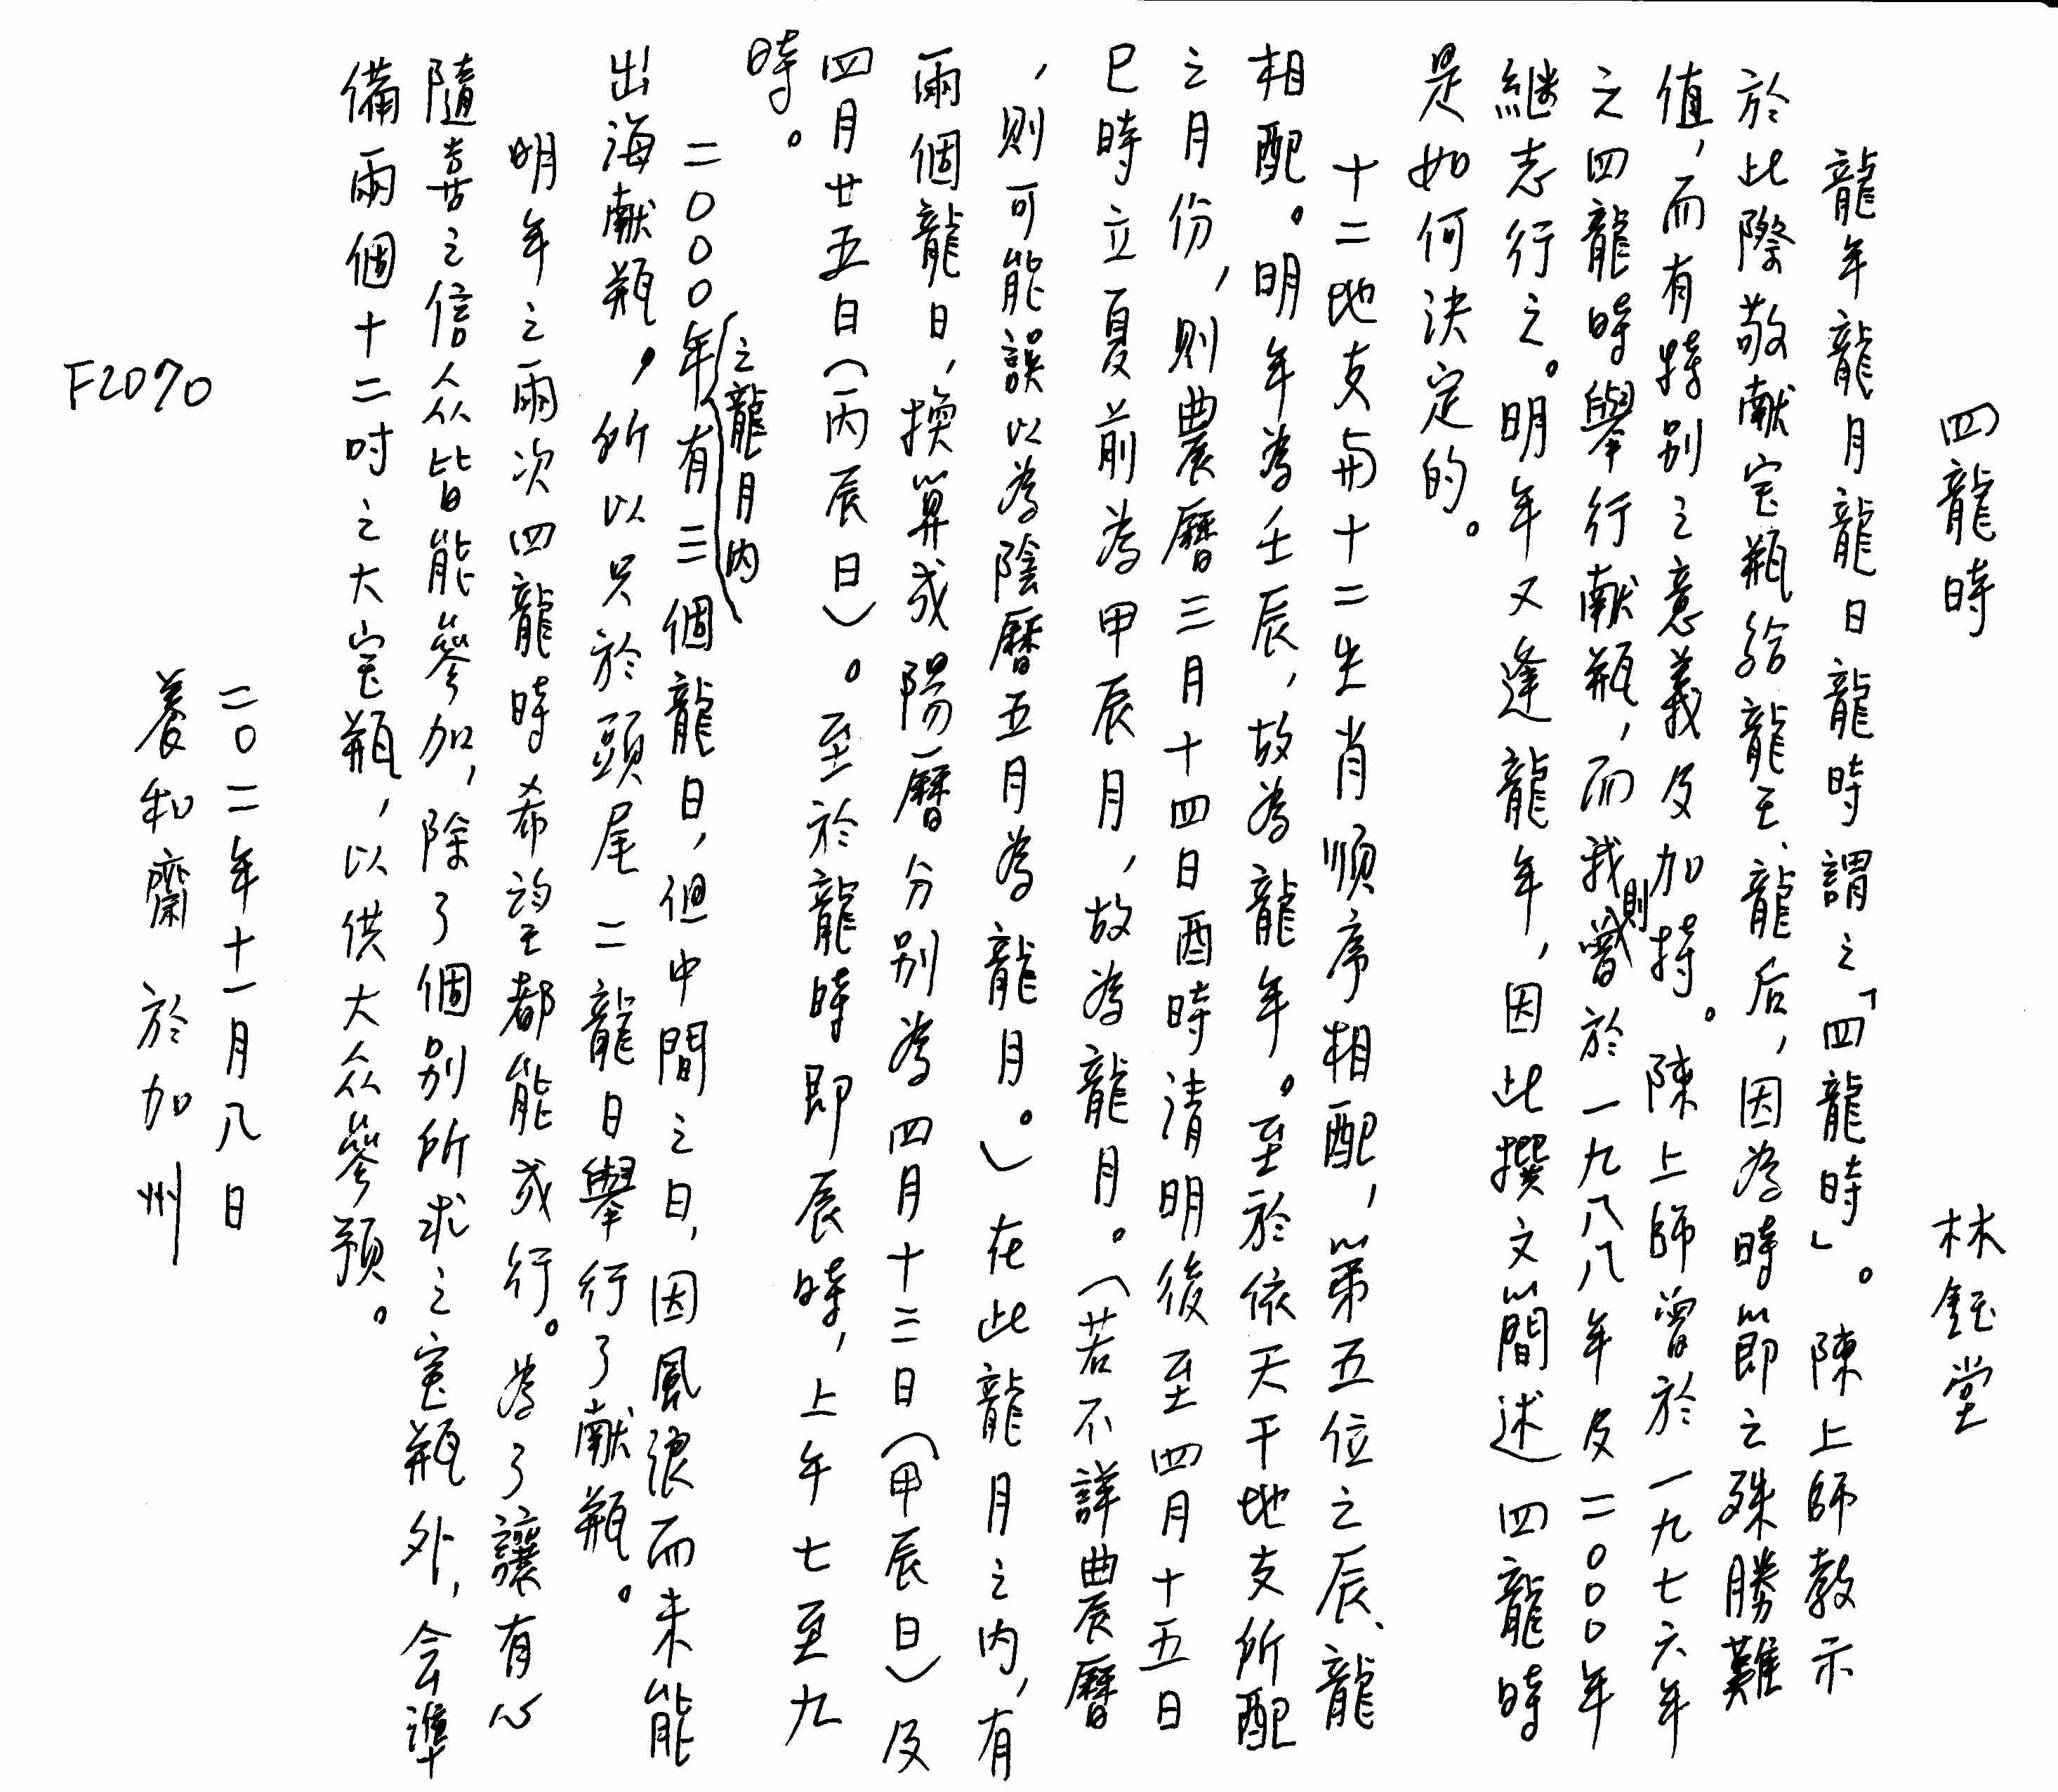 四龍時　林鈺堂
龍年龍月龍日龍時謂之「四龍時」。陳上師教示
於此際敬献宝瓶給龍王、龍后，因為時節之殊勝難
值，而有特别之意義及加持。陳上師曾於一九七六年
之四龍時舉行献瓶，而我則曾於一九八八年及二〇〇〇年
継志行之。明年又逢龍年，因此撰文簡述四龍時
是如何決定的。
十二地支與十二生肖順序相配，第五位之辰、龍
相配。明年為壬辰，故為龍年。至於依天干地支所配
之月份，則農曆三月十四日酉時清明後至四月十五日
巳時立夏前為甲辰月，故為龍月。（若不詳農曆
，則可能誤以為陰曆五月為龍月。）在此龍月之内，有
兩個龍日，換算成陽曆分别為四月十三日（甲辰日）及
四月廿五日（丙辰日）。至於龍時即辰時，上午七至九
時。
二〇〇〇年之龍月内有三個龍日，但中間之日，因風浪而未能
出海献瓶，所以只於頭尾二龍日舉行了献瓶。
明年之兩次四龍時希望都能成行。為了讓有心
隨喜之信众皆能參加，除了個别所求之宝瓶外，会準
備兩個十二吋之大宝瓶，以供大众參預。
二〇一一年十一月八日
養和齋　於加州
F2070